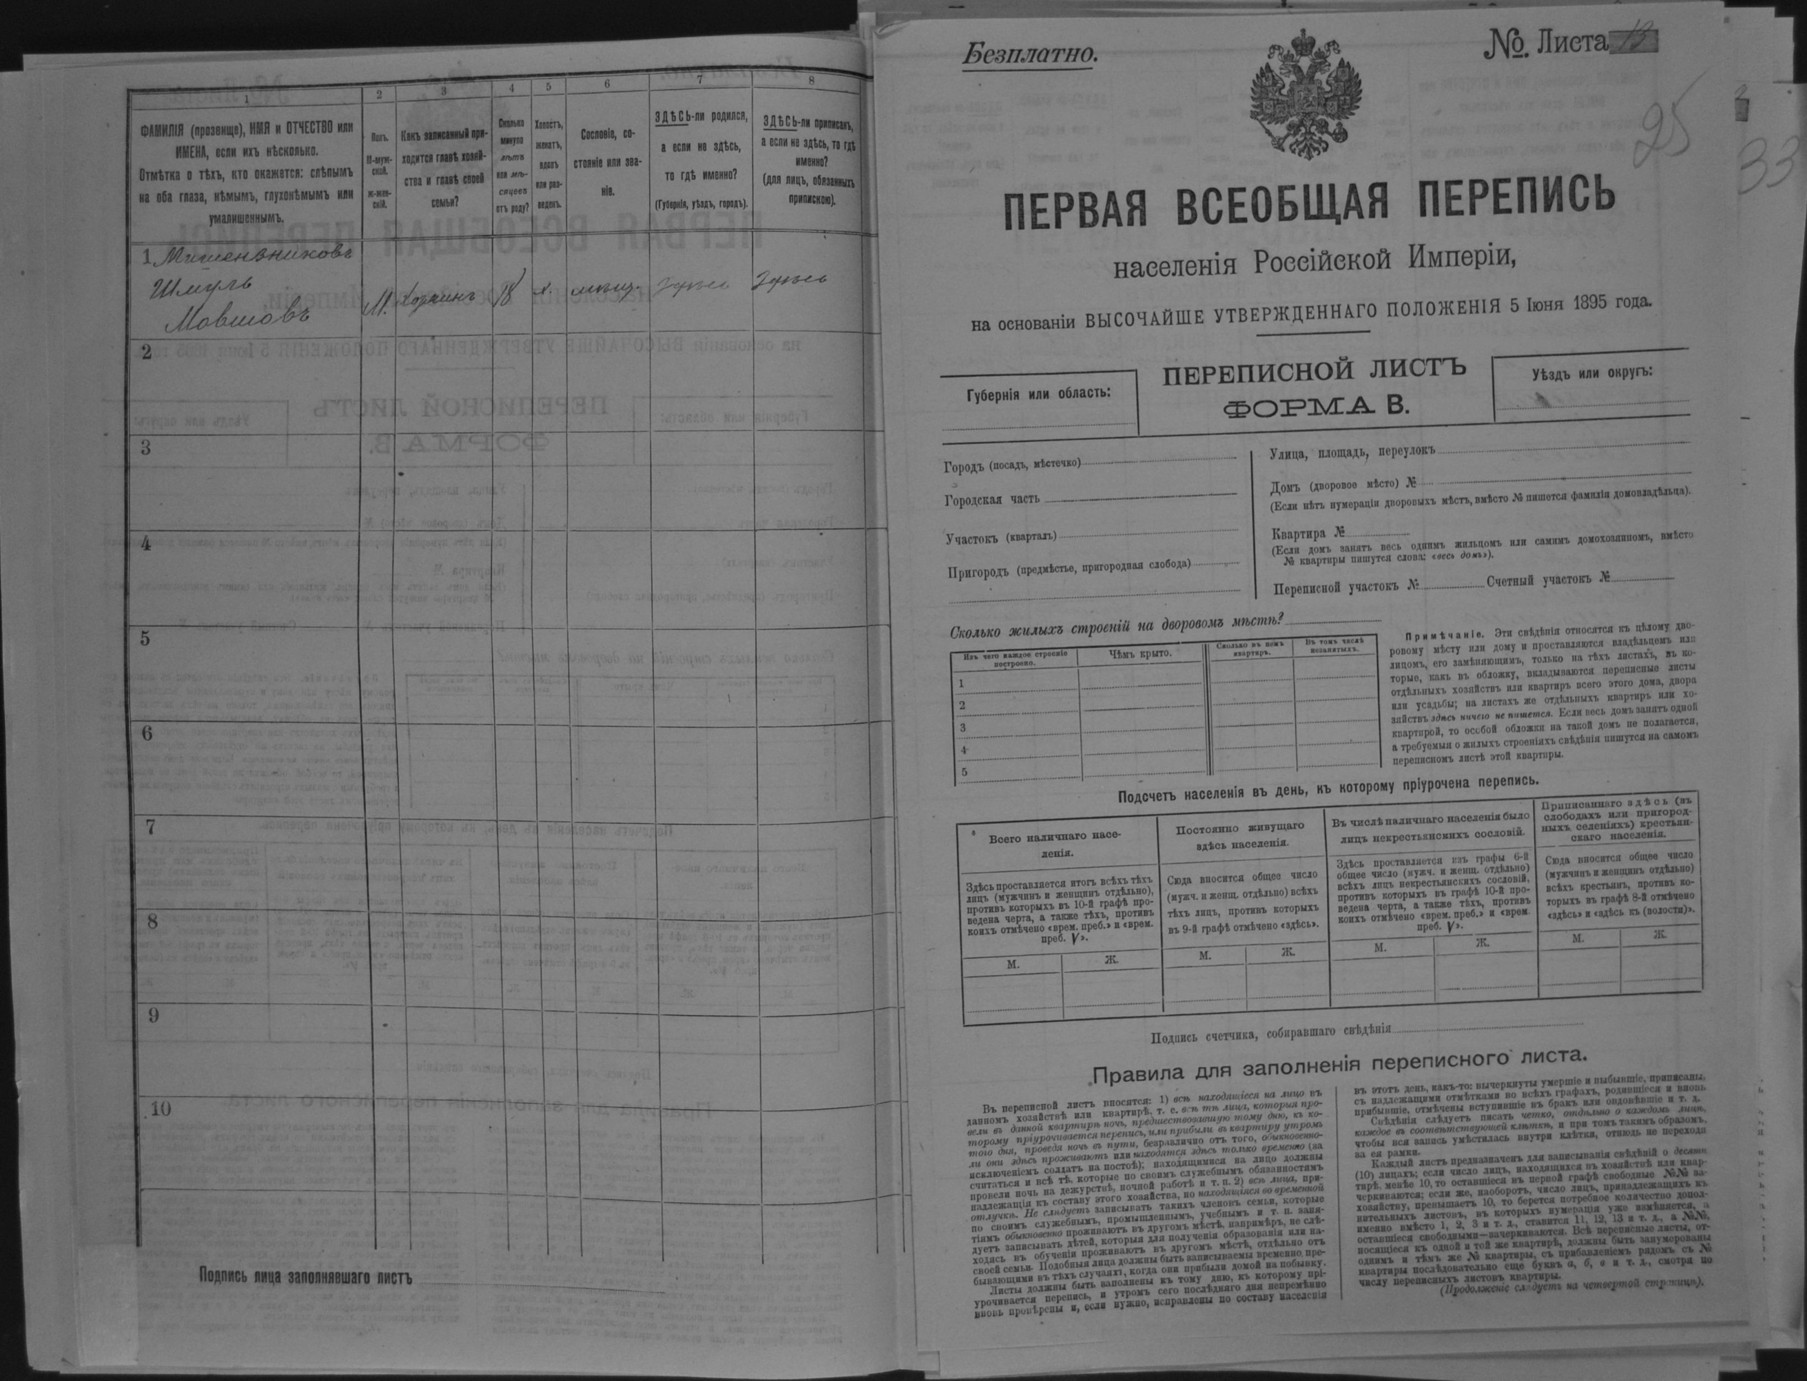 1
2
3
4
5
6
7
8
ФАМИЛІЯ (прозвище), ИМЯ и ОТЧЕСТВО или
ИМЕНА, если ихъ нѣсколько.
Отмѣтка о тѣхъ, кто окажется: слѣпымъ
на оба глаза, нѣмымъ, глухонѣмымъ или
умалишеннымъ.
Полъ.
М-муж-
ской.
ж-жен-
скій.
Какъ записанный при-
ходится главѣ хозяй-
ства и главѣ своей
семьи?
Сколько
минуло
лѣтъ
или мѣ-
сяцевъ
отъ роду?
Холостъ,
женатъ,
вдовъ
или раз-
веденъ.
Сословіе, со-
стояніе или зва-
ніе.
ЗДѢСЬ-ли родился,
а если не здѣсь,
то гдѣ именно?
(Губернія, уѣздъ, городъ).
ЗДѢСЬ-ли приписанъ,
а если не здѣсь, то гдѣ
именно?
(для лицъ, обязанныхъ
припискою).
1
Шмуль
Мовшовъ
М.
18
х.
Здѣсь
Здѣсь
2
3
4
5
6
7
8
9
10
Подпись лица заполнявшаго листъ
Безплатно.
№ Листа 13
25
33
ПЕРВАЯ ВСЕОБЩАЯ ПЕРЕПИСЬ
населенія Россійской Имперіи,
на основаніи ВЫСОЧАЙШЕ УТВЕРЖДЕННАГО ПОЛОЖЕНІЯ 5 Іюня 1895 года.
Губернія или область:
ПЕРЕПИСНОЙ ЛИСТЪ
ФОРМА В.
Уѣздъ или округъ:
Городъ (посадъ, мѣстечко)
Городская часть
Участокъ (кварталъ)
Пригородъ (предмѣстье, пригородная слобода)
Улица, площадь, переулокъ
Домъ (дворовое мѣсто) №
(Если нѣтъ нумераціи дворовыхъ мѣстъ, вмѣсто № пишется фамилія домовладѣльца).
Квартира №
(Если домъ занятъ весь однимъ жильцомъ или самимъ домохозяиномъ, вмѣсто
№ квартиры пишутся слова: «весь домъ»).
Переписной участокъ № Счетный участокъ №
Сколько жилыхъ строеній на дворовомъ мѣстѣ?
Изъ чего каждое строеніе
построено.
Чѣмъ крыто.
Сколько въ немъ
квартиръ.
Въ томъ числѣ
незанятыхъ.
1
2
3
4
5
Примѣчаніе. Эти свѣдѣнія относятся къ цѣлому дво-
ровому мѣсту или дому и проставляются владѣльцемъ или
лицомъ, его замѣняющимъ, только на тѣхъ листахъ, въ ко-
торые, какъ въ обложку, вкладываются переписные листы
отдѣльныхъ хозяйствъ или квартиръ всего этого дома, двора
или усадьбы; на листахъ же отдѣльныхъ квартиръ или хо-
зяйствъ здѣсь ничего не пишется. Если весь домъ занятъ одной
квартирой, то особой обложки на такой домъ не полагается,
а требуемыя о жилыхъ строеніяхъ свѣдѣнія пишутся на самомъ
переписномъ листѣ этой квартиры.
Подсчетъ населенія въ день, къ которому пріурочена перепись.
Всего наличнаго насе-
ленія.
Здѣсь проставляется итогъ всѣхъ тѣхъ
лицъ (мужчинъ и женщинъ отдѣльно),
противъ которыхъ въ 10-й графѣ про-
ведена черта, а также тѣхъ, противъ
коихъ отмѣчено «врем. преб.» и «врем.
преб. V».
М.
Ж.
Постоянно живущаго
здѣсь населенія.
Сюда вносится общее число
(мужч. и женщ. отдѣльно) всѣхъ
тѣхъ лицъ, противъ которыхъ
въ 9-й графѣ отмѣчено «здѣсь».
М.
Ж.
Въ числѣ наличнаго населенія было
лицъ некрестьянскихъ сословій.
Здѣсь проставляется изъ графы 6-й
общее число (мужч. и женщ. отдѣльно)
всѣхъ лицъ некрестьянскихъ сословій,
противъ которыхъ въ графѣ 10-й про-
ведена черта, а также тѣхъ, противъ
коихъ отмѣчено «врем. преб.» и «врем.
преб. V».
М.
Ж.
Приписаннаго здѣсь (въ
слободахъ или пригород-
ныхъ селеніяхъ) крестьян-
скаго населенія.
Сюда вносится общее число
(мужчинъ и женщинъ отдѣльно)
всѣхъ крестьянъ, противъ ко-
торыхъ въ графѣ 8-й отмѣчено
«здѣсь» и «здѣсь къ (волости)».
М.
Ж.
Подпись счетчика, собиравшаго свѣдѣнія
Правила для заполненія переписного листа.
Въ переписной листъ вносятся: 1) всѣ находящіеся на лицо въ
данномъ хозяйствѣ или квартирѣ, т. е. всѣ тѣ лица, которыя про-
вели въ данной квартирѣ ночь, предшествовавшую тому дню, къ ко-
торому пріурочивается перепись, или прибыли въ квартиру утромъ
того дня, проведя ночь въ пути, безразлично отъ того, обыкновенно-
ли они здѣсь проживаютъ или находятся здѣсь только временно (за
исключеніемъ солдатъ на постоѣ); находящимися на лицо должны
считаться и всѣ тѣ, которые по своимъ служебнымъ обязанностямъ
провели ночь на дежурствѣ, ночной работѣ и т. п. 2) всѣ лица, при-
надлежащія къ составу этого хозяйства, но находящіяся во временной
отлучкѣ. Не слѣдуетъ записывать такихъ членовъ семьи, которые
по своимъ служебнымъ, промышленнымъ, учебнымъ и т. п. заня-
тіямъ обыкновенно проживаютъ въ другомъ мѣстѣ, напримѣръ, не слѣ-
дуетъ записывать дѣтей, которыя для полученія образованія или на-
ходясь въ обученіи проживаютъ въ другомъ мѣстѣ, отдѣльно отъ
своей семьи. Подобныя лица должны быть записываемы временно пре-
бывающими въ тѣхъ случаяхъ, когда они прибыли домой на побывку.
Листы должны быть заполнены къ тому дню, къ которому прі-
урочивается перепись, и утромъ сего послѣдняго дня непремѣнно
вновь провѣрены и, если нужно, исправлены по составу населенія
въ этотъ день, какъ-то: вычеркнуты умершіе и выбывшіе, приписаны,
съ надлежащими отмѣтками во всѣхъ графахъ, родившіеся и вновь
прибывшіе, отмѣчены вступившіе въ бракъ или овдовѣвшіе и т. д.
Свѣдѣнія слѣдуетъ писать четко, отдѣльно о каждомъ лицѣ,
каждое въ соотвѣтствующей клѣткѣ, и при томъ такимъ образомъ,
чтобы вся запись умѣстилась внутри клѣтки, отнюдь не переходя
за ея рамки.
Каждый листъ предназначенъ для записыванія свѣдѣній о десяти
(10) лицахъ; если число лицъ, находящихся въ хозяйствѣ или квар-
тирѣ, менѣе 10, то оставшіеся въ первой графѣ свободные №№ за-
черкиваются; если же, наоборотъ, число лицъ, принадлежащихъ къ
хозяйству, превышаетъ 10, то берется потребное количество допол-
нительныхъ листовъ, въ которыхъ нумерація уже измѣняется, а
именно вмѣсто 1, 2, 3 и т. д., ставится 11, 12, 13 и т. д., а №№,
оставшіеся свободными—зачеркиваются. Всѣ переписные листы, от-
носящіеся къ одной и той же квартирѣ, должны быть занумерованы
однимъ и тѣмъ же № квартиры, съ прибавленіемъ рядомъ съ №
квартиры послѣдовательно еще буквъ а, б, в и т. д., смотря по
числу переписныхъ листовъ квартиры.
(Продолженіе слѣдуетъ на четвертой страницѣ).